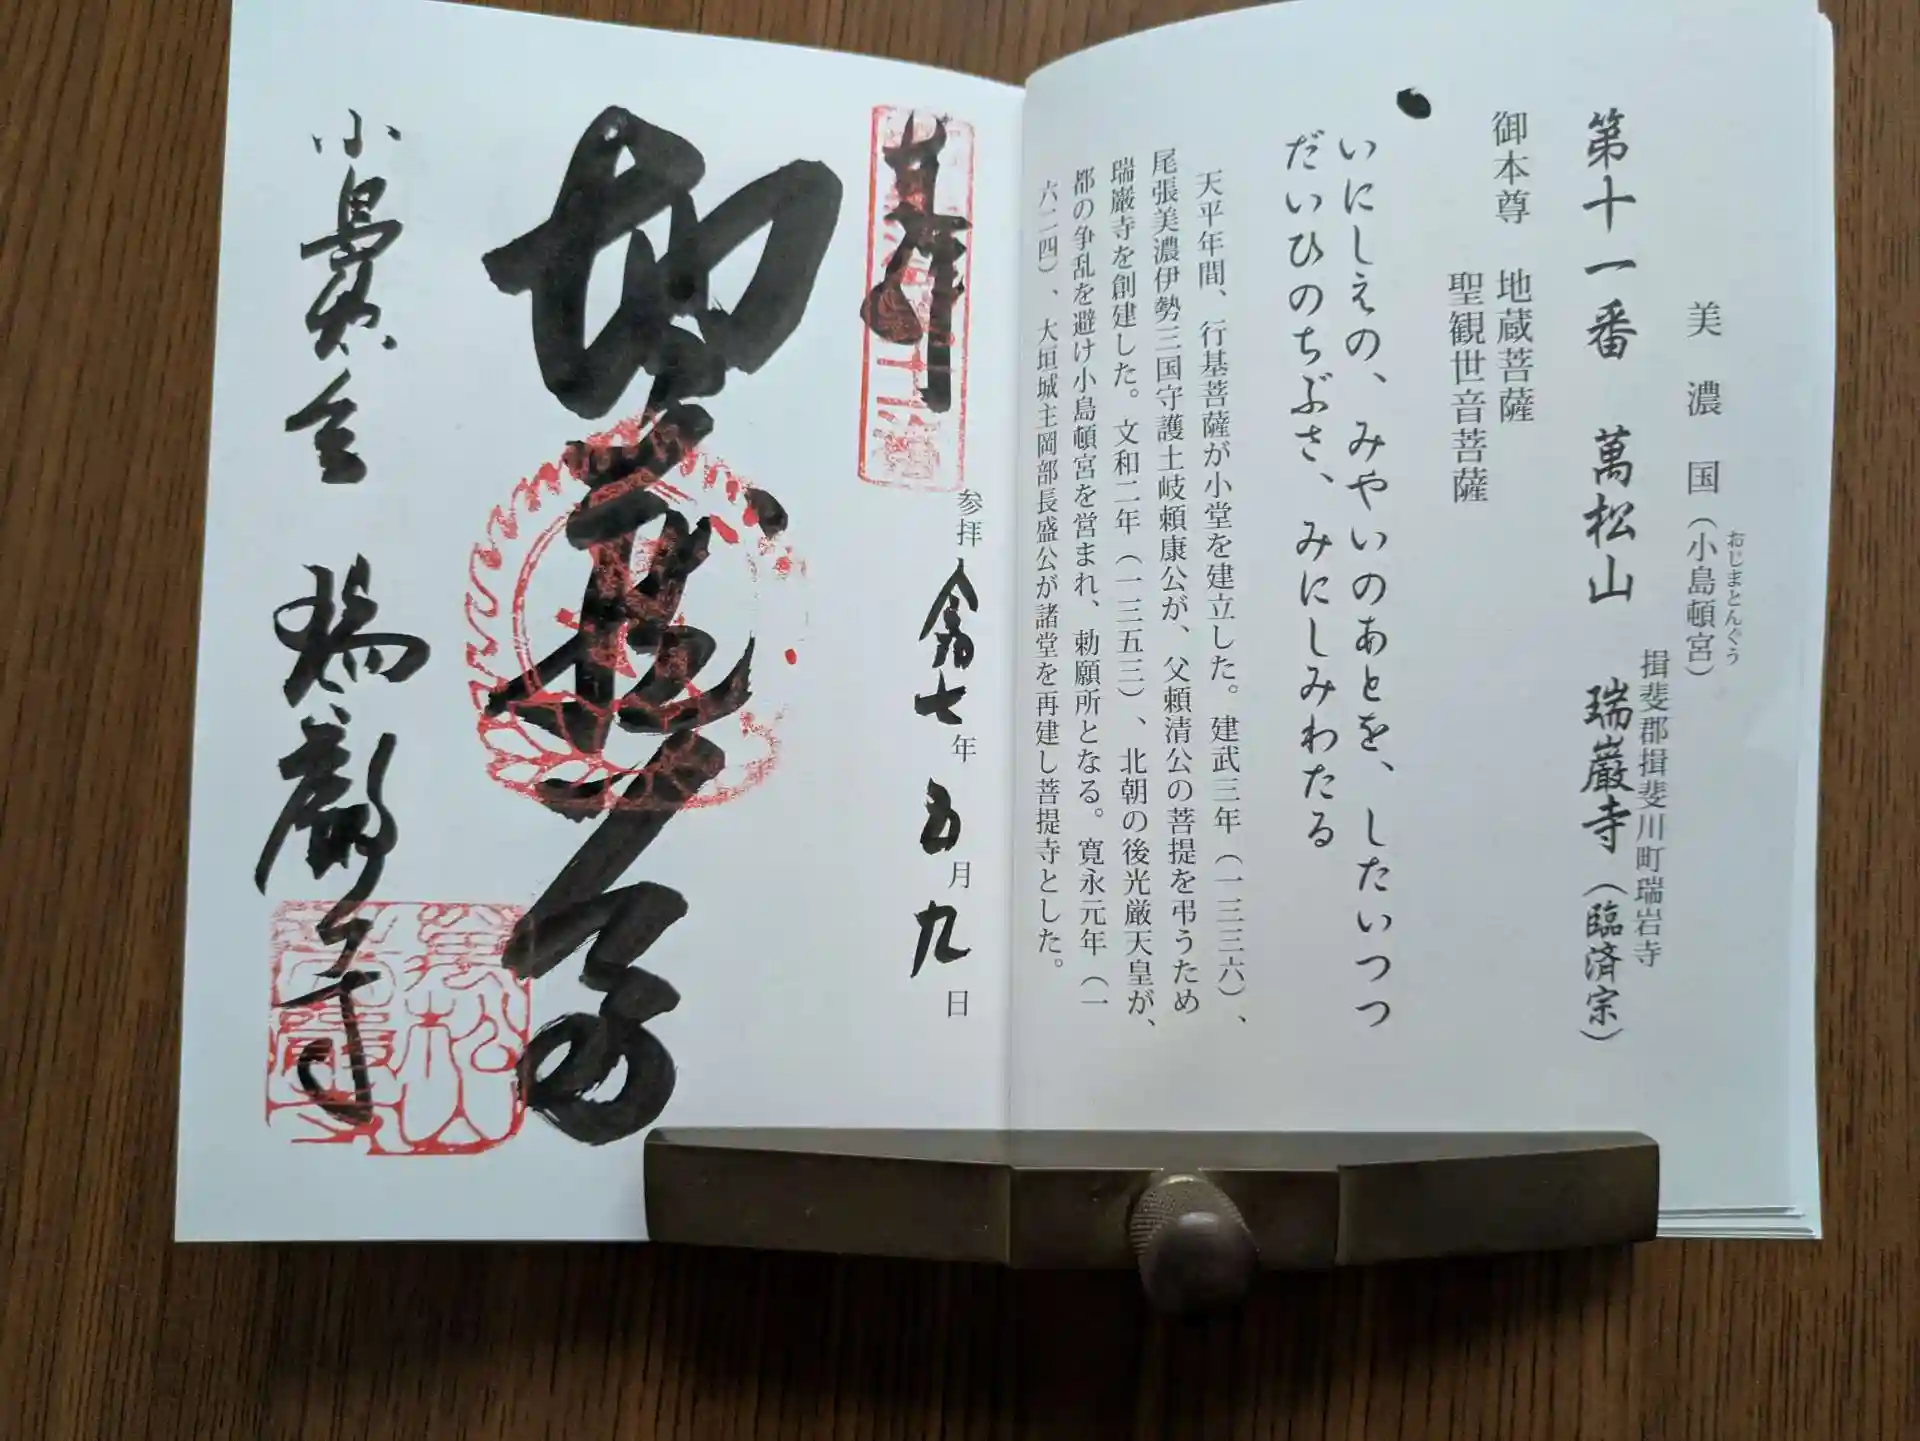 美濃国(小島頓宮)
おじまとんぐう
揖斐郡揖斐川町瑞岩寺
第十一番 萬松山 瑞巌寺(臨済宗)
御本尊 地蔵菩薩
聖観世音菩薩
いにしえの、みやいのあとを、したいつつ
だいひのちぶさ、みにしみわたる
天平年間、行基菩薩が小堂を建立した。建武三年(一三三六)、
尾張美濃伊勢三国守護土岐頼康公が、父頼清公の菩提を弔うため
瑞巌寺を創建した。文和二年(一三五三)、北朝の後光厳天皇が、
都の争乱を避け小島頓宮を営まれ、勅願所となる。寛永元年(一
六二四)、大垣城主岡部長盛公が諸堂を再建し菩提寺とした。
奉拝
参拝 令和七年 五月 九日
地蔵菩薩
小島頓宮 瑞巌寺
萬松山